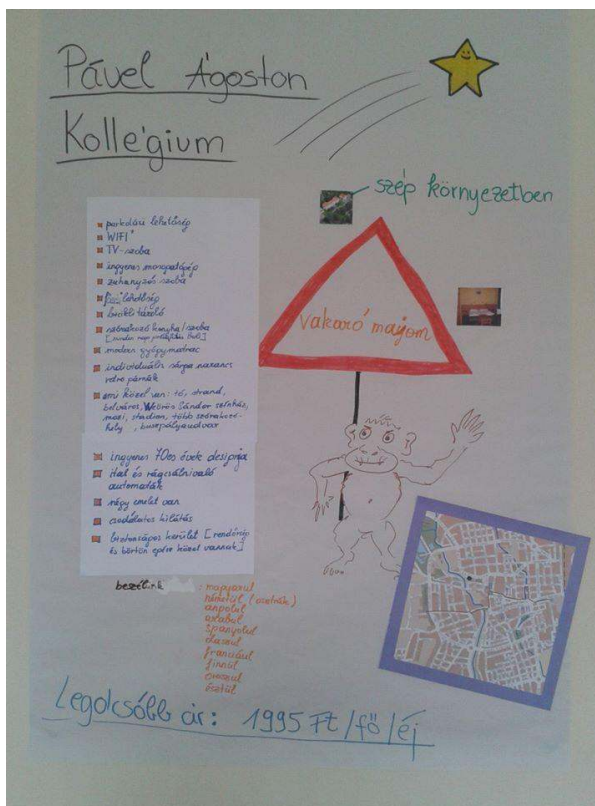 Pável Ágoston
Kollégium
szép környezetben
parkolási lehetőség
WIFI
TV-szoba
ingyenes mosogatógép
zuhanyzós szoba
lehetőség
bicikli tároló
szórakozó konyha/szoba
modern gyógymatrac
individuális sárga narancs
retro párnák
ami közel van: tó, strand,
belváros, Weörös Sándor színház,
mozi, stadion, több szórakozó-
hely, buszpályaudvar
ingyenes 70es évek designja
ital és rágcsálnivaló
automaták
négy emelet van
csodálatos kilátás
biztonságos kerület [rendőrség
és börtön egész közel vannak]
vakaró majom
beszélünk : magyarul
németül (osztrák)
angolul
arabul
spanyolul
olaszul
franciául
finnül
oroszul
észtül
Legolcsóbb ár: 1995 Ft/fő/éj